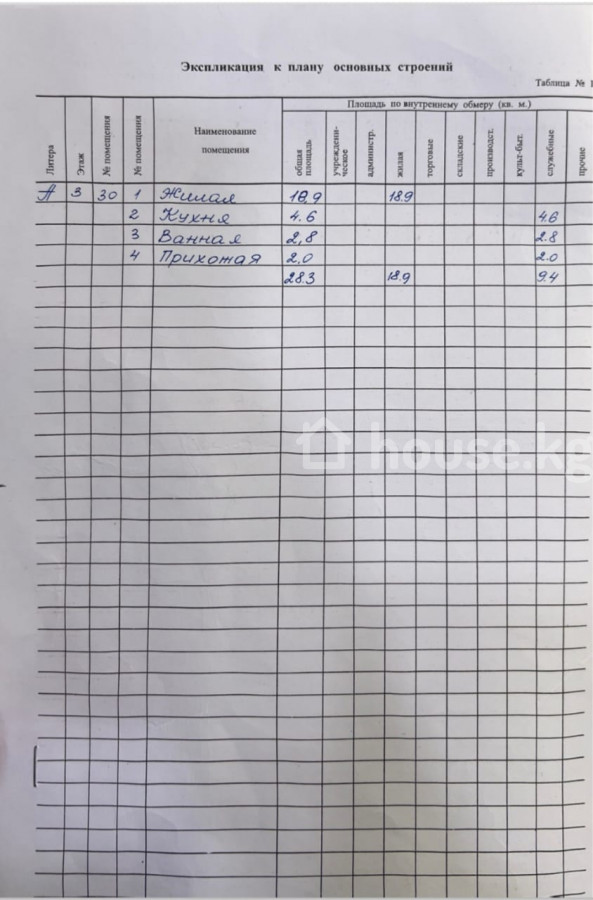 Экспликация к плану основных строений
Таблица № 1
Литера
Этаж
№ помещения
№ помещения
Наименование помещения
Площадь по внутреннему обмеру (кв. м.)
общая площадь
учреждени-ческое
администр.
жилая
торговые
складские
производст.
культ-быт.
служебные
прочие
А 3 30 1 Жилая 18,9 18.9
2 Кухня 4.6 4.6
3 Ванная 2,8 2.8
4 Прихожая 2,0 2.0
28.3 18.9 9.4
house.kg